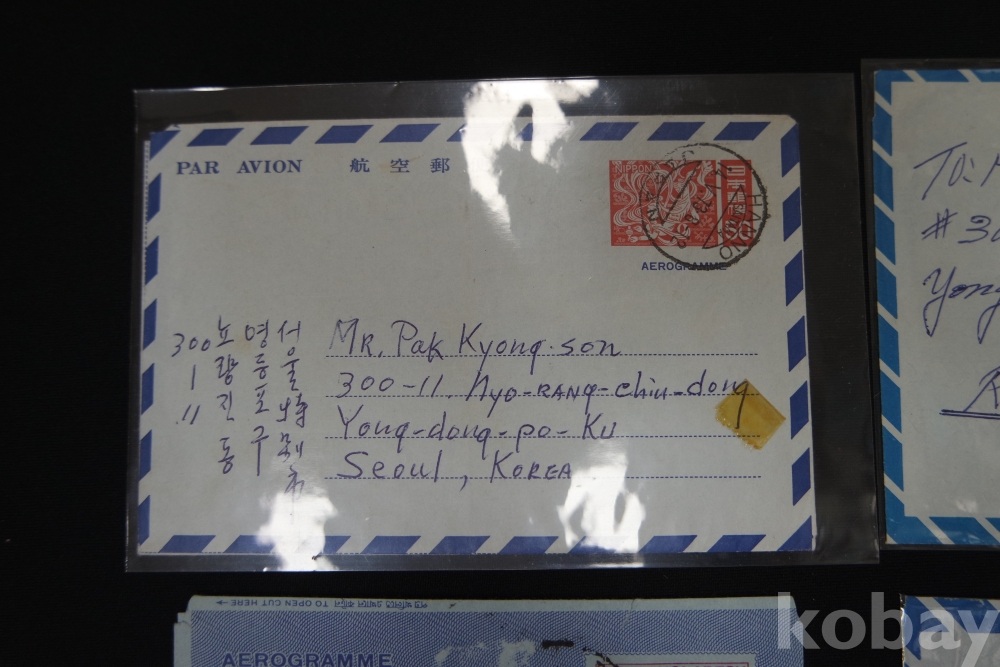 PAR AVION 航空郵
NIPPON
AEROGRAMME
서울特別市
영등포구
노량진동
300-11
Mr. Pak Kyong-son
300-11, Nyo-rang-chin-dong
Yong-dong-po-Ku
Seoul, Korea
To:
# 30
Yong
TO OPEN CUT HERE
AEROGRAMME
kobay